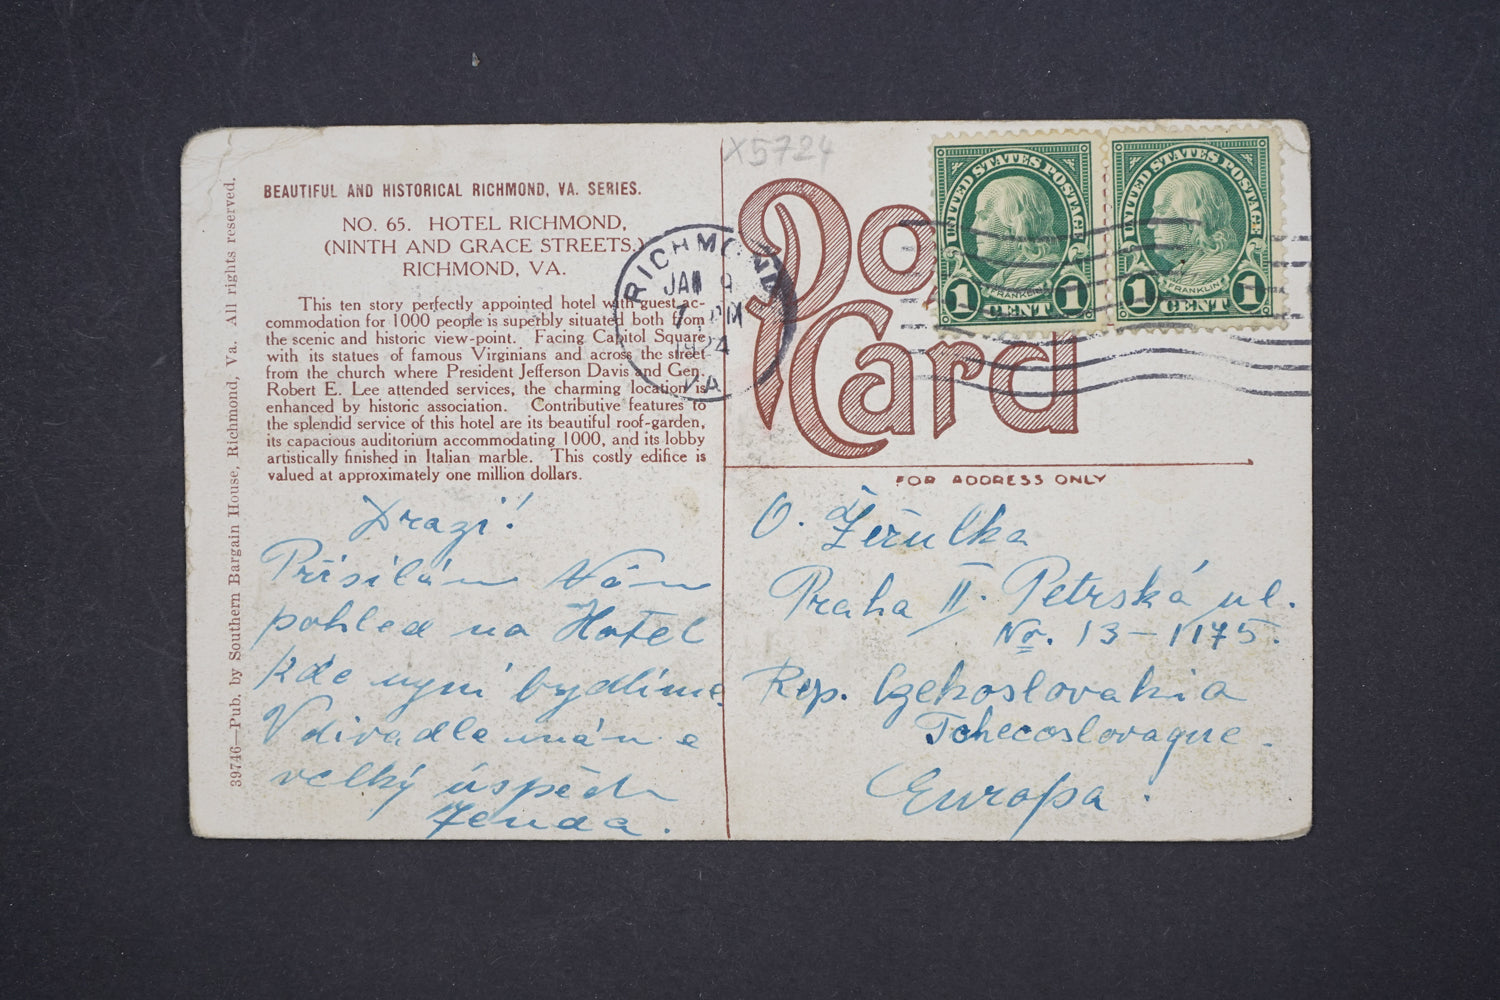 X5724
BEAUTIFUL AND HISTORICAL RICHMOND, VA. SERIES.
NO. 65. HOTEL RICHMOND,
(NINTH AND GRACE STREETS.)
RICHMOND, VA.
This ten story perfectly appointed hotel with guest ac-
commodation for 1000 people is superbly situated both from
the scenic and historic view-point. Facing Capitol Square
with its statues of famous Virginians and across the street
from the church where President Jefferson Davis and Gen.
Robert E. Lee attended services, the charming location is
enhanced by historic association. Contributive features to
the splendid service of this hotel are its beautiful roof-garden,
its capacious auditorium accommodating 1000, and its lobby
artistically finished in Italian marble. This costly edifice is
valued at approximately one million dollars.
39746—Pub. by Southern Bargain House, Richmond, Va. All rights reserved.
Drazí!
Přisílám Vám
pohled na Hotel
kde nyní bydlíme.
V divadle mám e
velký úspěch
Jenda.
RICHMOND
JAN 9
7 PM
1924
VA.
Post
Card
UNITED STATES POSTAGE
FRANKLIN
1 CENT 1
UNITED STATES POSTAGE
FRANKLIN
1 CENT 1
FOR ADDRESS ONLY
O. Žerulka
Praha II. Petrská ul.
No. 13–1175.
Rep. Czekoslovakia
Tchecoslovaque.
Europa.